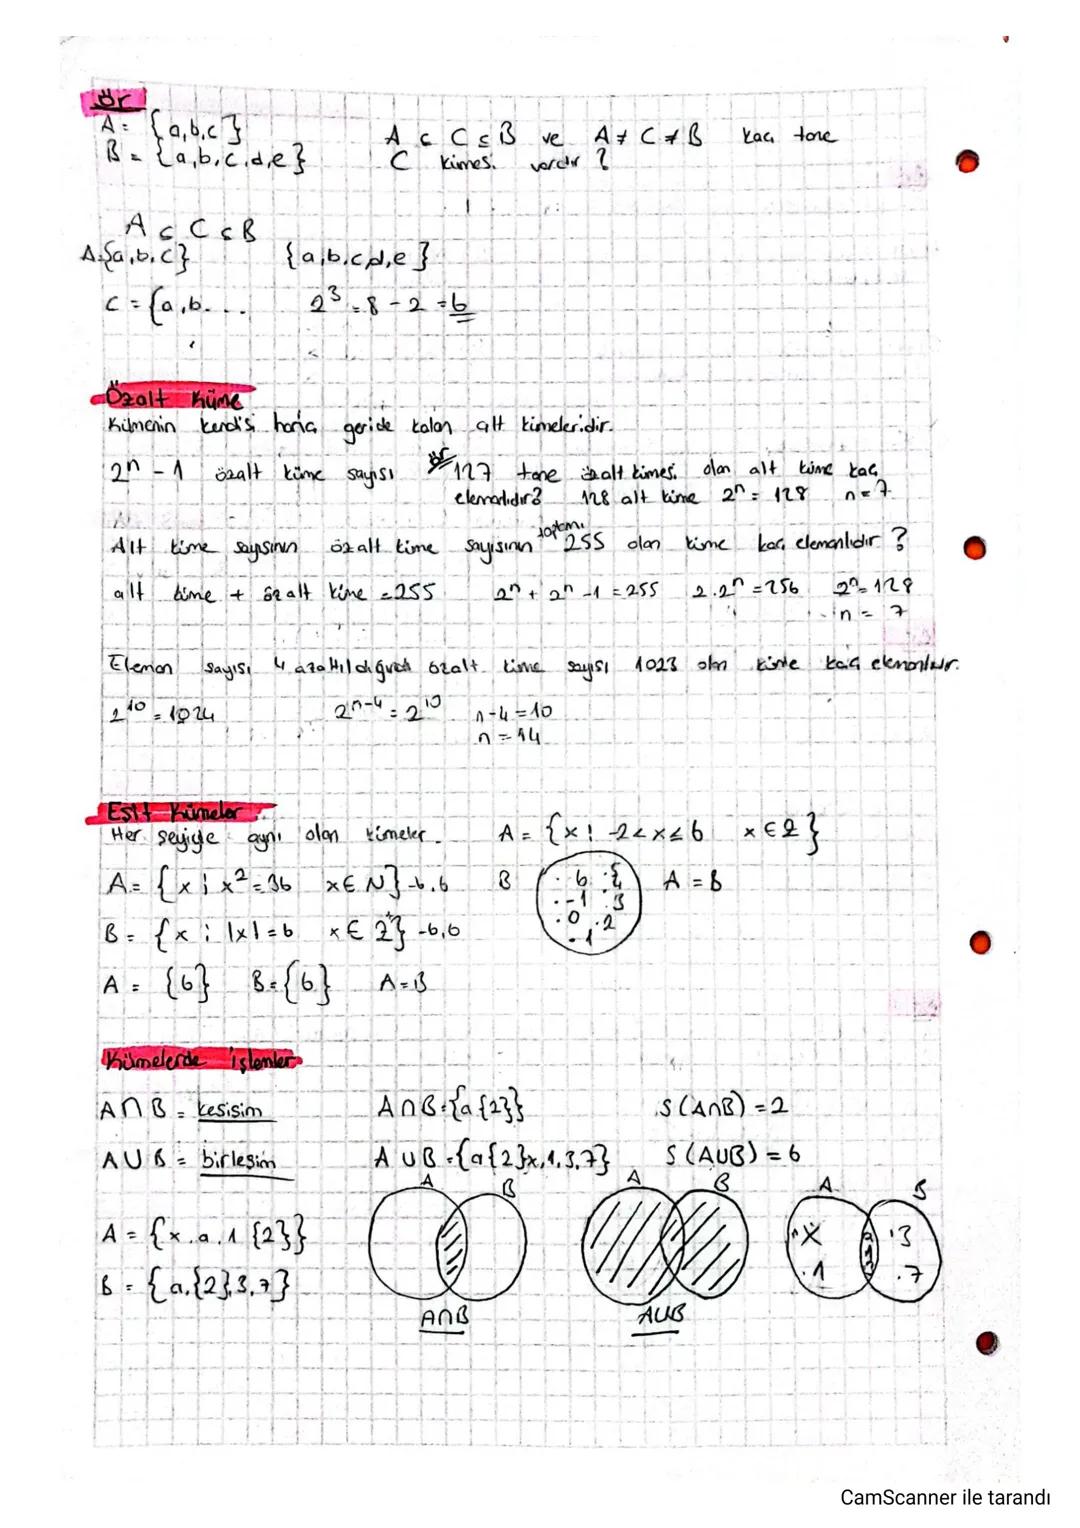 ör
A = {a,b,c}
B = {a,b,c,d,e}
A ⊆ C ⊆ B ve A ≠ C ≠ B kaç tane
C kümesi vardır ?
A ⊆ C ⊆ B
A={a,b,c} {a,b,c,d,e}
C = {a,b... 2³ = 8 - 2 = 6
Özalt Küme
Kümenin kendisi hariç geride kalan alt kümeleridir.
2ⁿ - 1 özalt küme sayısı ör 127 tane özalt kümesi olan alt küme kaç
elemanlıdır? 128 alt küme 2ⁿ = 128 n = 7
Alt küme sayısının özalt küme sayısının toplamı 255 olan küme kaç elemanlıdır ?
alt küme + özalt küme = 255 2ⁿ + 2ⁿ - 1 = 255 2.2ⁿ = 256 2ⁿ = 128
n = 7
Eleman sayısı 4 azaltıldığında özalt küme sayısı 1023 olan küme kaç elemanlıdır.
2¹⁰ = 1024 2ⁿ⁻⁴ = 2¹⁰ n-4 = 10
n = 14
Eşit Kümeler
Her şeyiyle aynı olan kümeler A = {x ¦ -2<x≤6 x ∈ Z}
A = {x ¦ x² = 36 x ∈ N} -6,6 B . 6 . . -1 . 3 . 0 . 2 . 1 A = B
B = {x ¦ |x| = 6 x ∈ Z⁺} -6,6
A = {6} B = {6} A = B
Kümelerde işlemler
A∩B = kesişim A∩B = {a{2}} S(A∩B) = 2
A∪B = birleşim A∪B = {a{2}x,1,3,7} S(A∪B) = 6
A B A B A B
A = {x.a.1{2}} .x .3
B = {a.{2}.3.7} .1 .7
A∩B A∪B
CamScanner ile tarandı